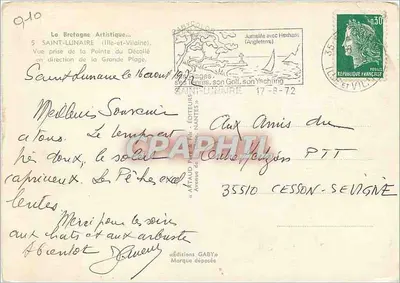 910
La Bretagne Artistique...
5 SAINT-LUNAIRE (Ille-et-Vilaine).
Vue prise de la Pointe du Décollé
en direction de la Grande Plage.
Jumelée avec Hexham
(Angleterre)
son Tennis, son Golf, son Yachting
SAINT-LUNAIRE 17-8-72
0,30
REPUBLIQUE FRANÇAISE
Saint Lunaire le 16 août 1972
Meilleurs Souvenirs
à tous. Le temps est
très doux, le soleil
capricieux. Les Pêches excel
lentes.
Merci pour les soins
aux chats et aux arbustes
A bientôt
Aux Amis du
PTT
35510 CESSON-SEVIGNE
CPARAMA
«Editions GABY»
Marque déposée